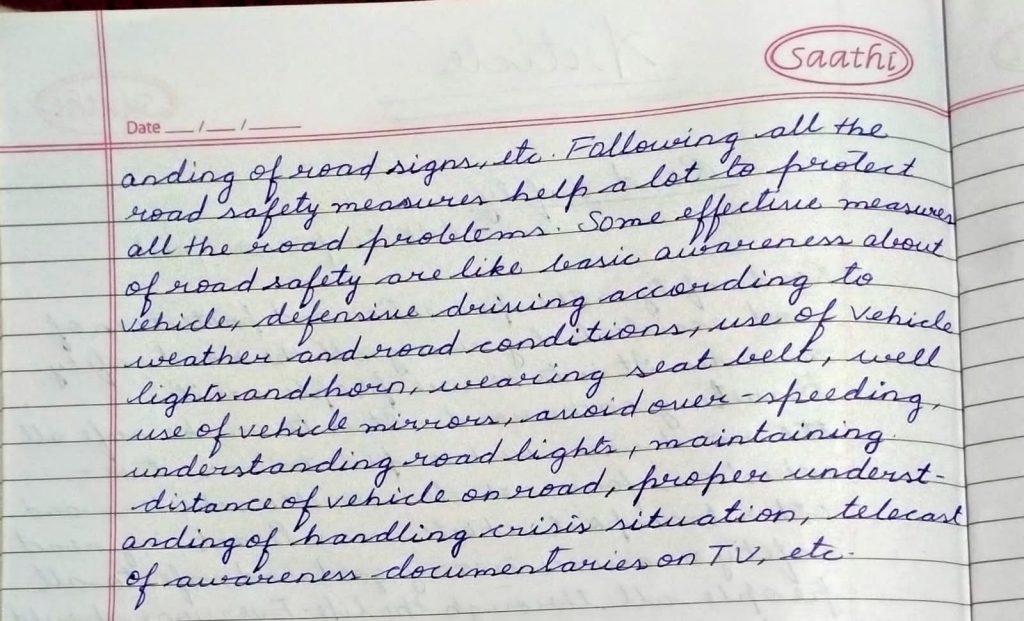 Saathi
Date __/__/____
anding of road signs, etc. Following all the
road safety measures help a lot to protect
all the road problems. Some effective measures
of road safety are like basic awareness about
vehicle, defensive driving according to
weather and road conditions, use of vehicle
lights and horn, wearing seat belt, well
use of vehicle mirrors, avoid over-speeding,
understanding road lights, maintaining
distance of vehicle on road, proper underst-
anding of handling crisis situation, telecast
of awareness documentaries on TV, etc.